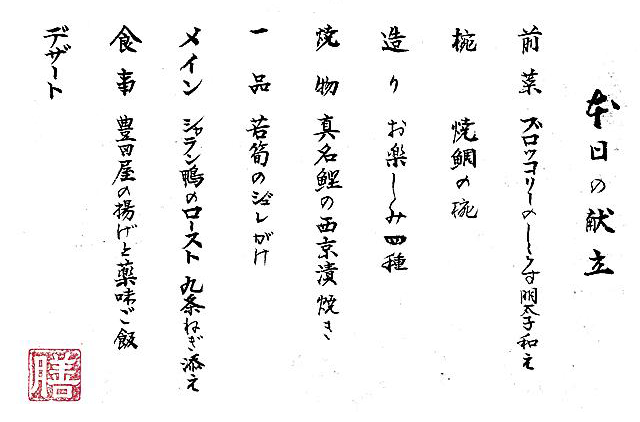 本日の献立
前菜 ブロッコリーのしらす明太子和え
椀 焼鯛の椀
造り お楽しみ四種
焼物 真名鰹の西京漬焼き
一品 若筍のジュレがけ
メイン シャラン鴨のロースト 九条ねぎ添え
食事 豊田屋の揚げと薬味ご飯
デザート
膳